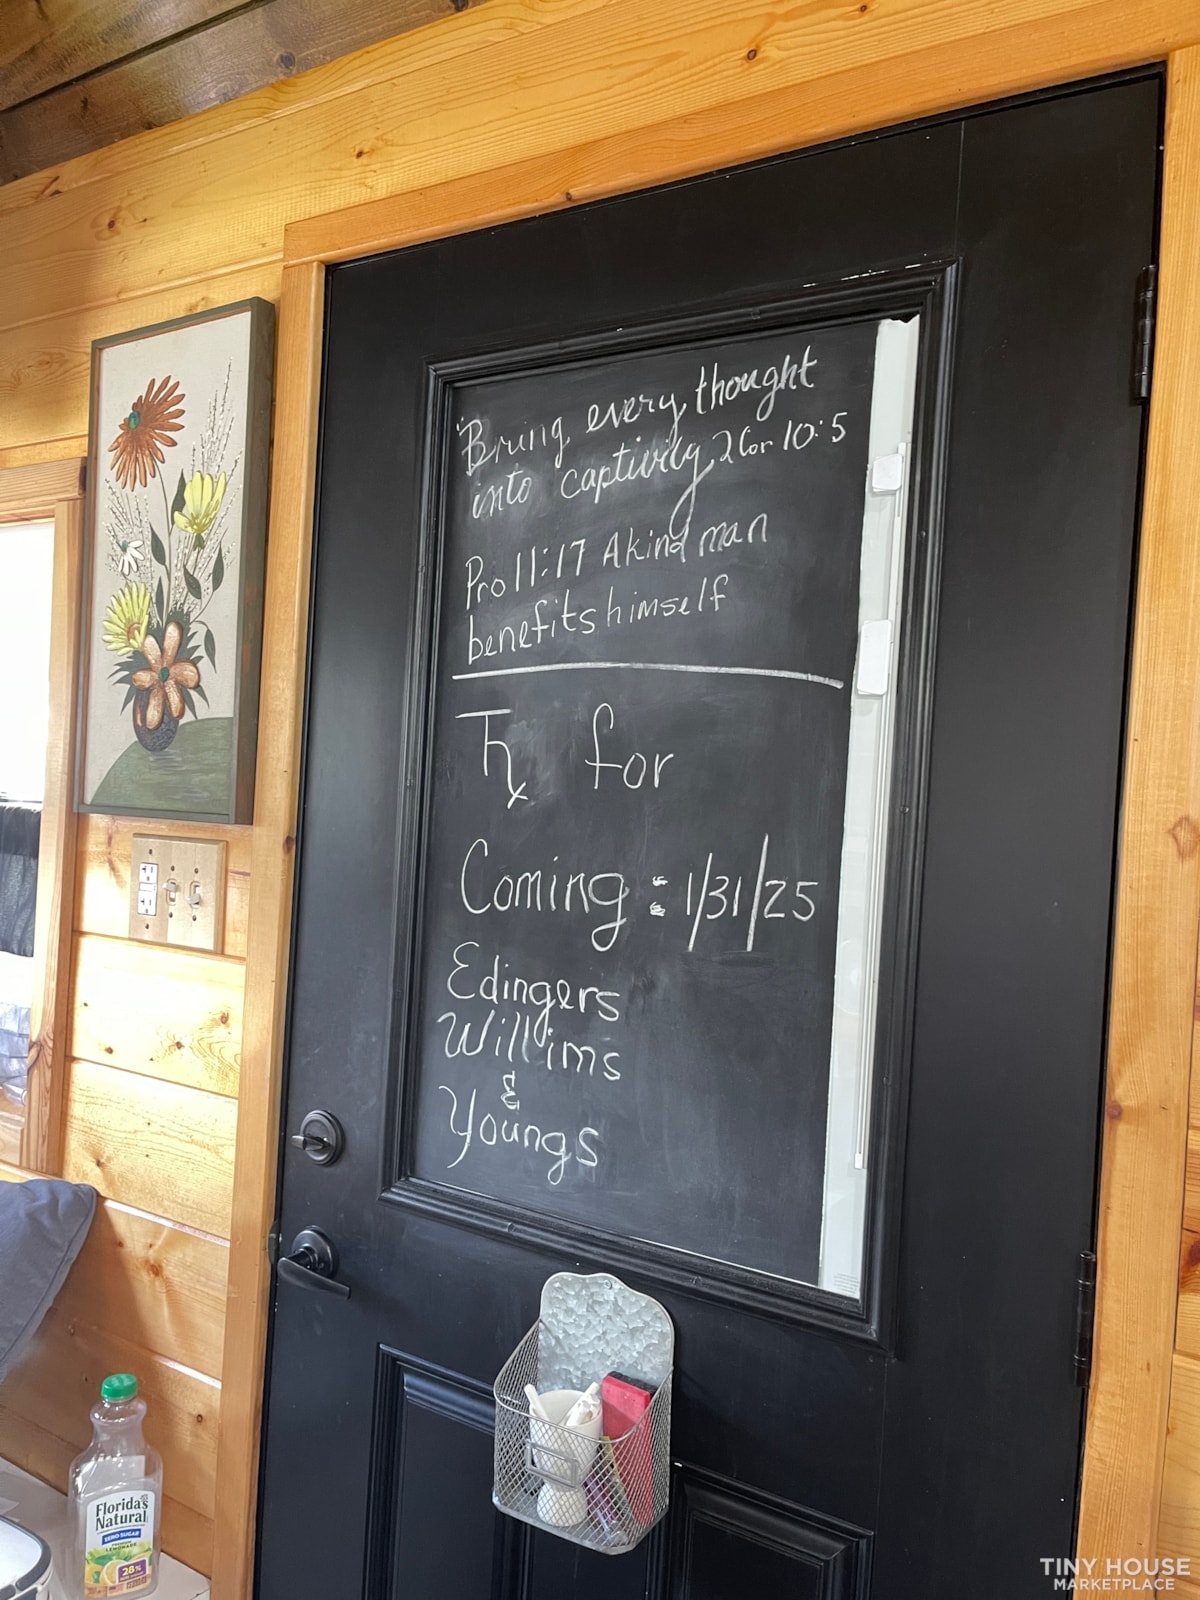 "Bring every thought
into captivity, 2 Cor 10:5
Pro 11:17 A kind man
benefits himself
for
Coming : 1/31/25
Edingers
Willims
&
Youngs
Florida's
Natural
ZERO SUGAR
PREMIUM
LEMONADE
25%
TINY HOUSE
MARKETPLACE